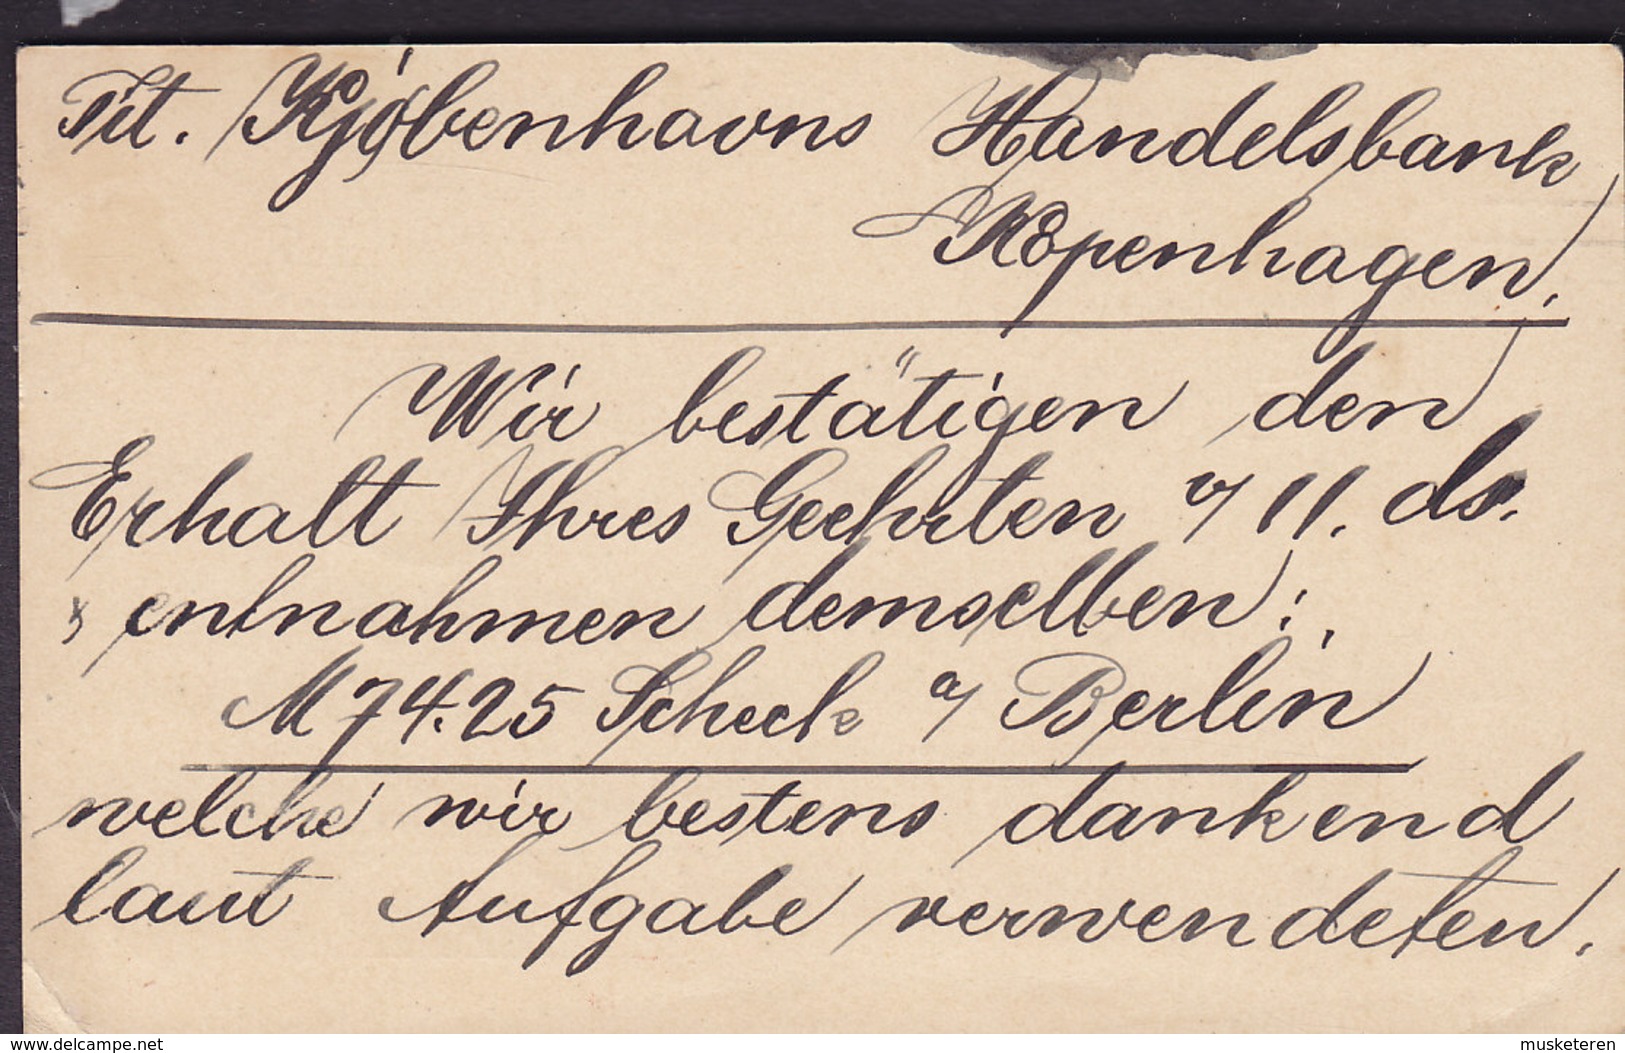 Tit. Kjøbenhavns Handelsbank
Kopenhagen.
Wir bestätigen den
Erhalt Ihres Geehrten v/ 11. ds.
& entnahmen demselben:
M 74.25 Scheck a/ Berlin
welche wir bestens dankend
laut Aufgabe verwendeten.
www.delcampe.net
musketeren